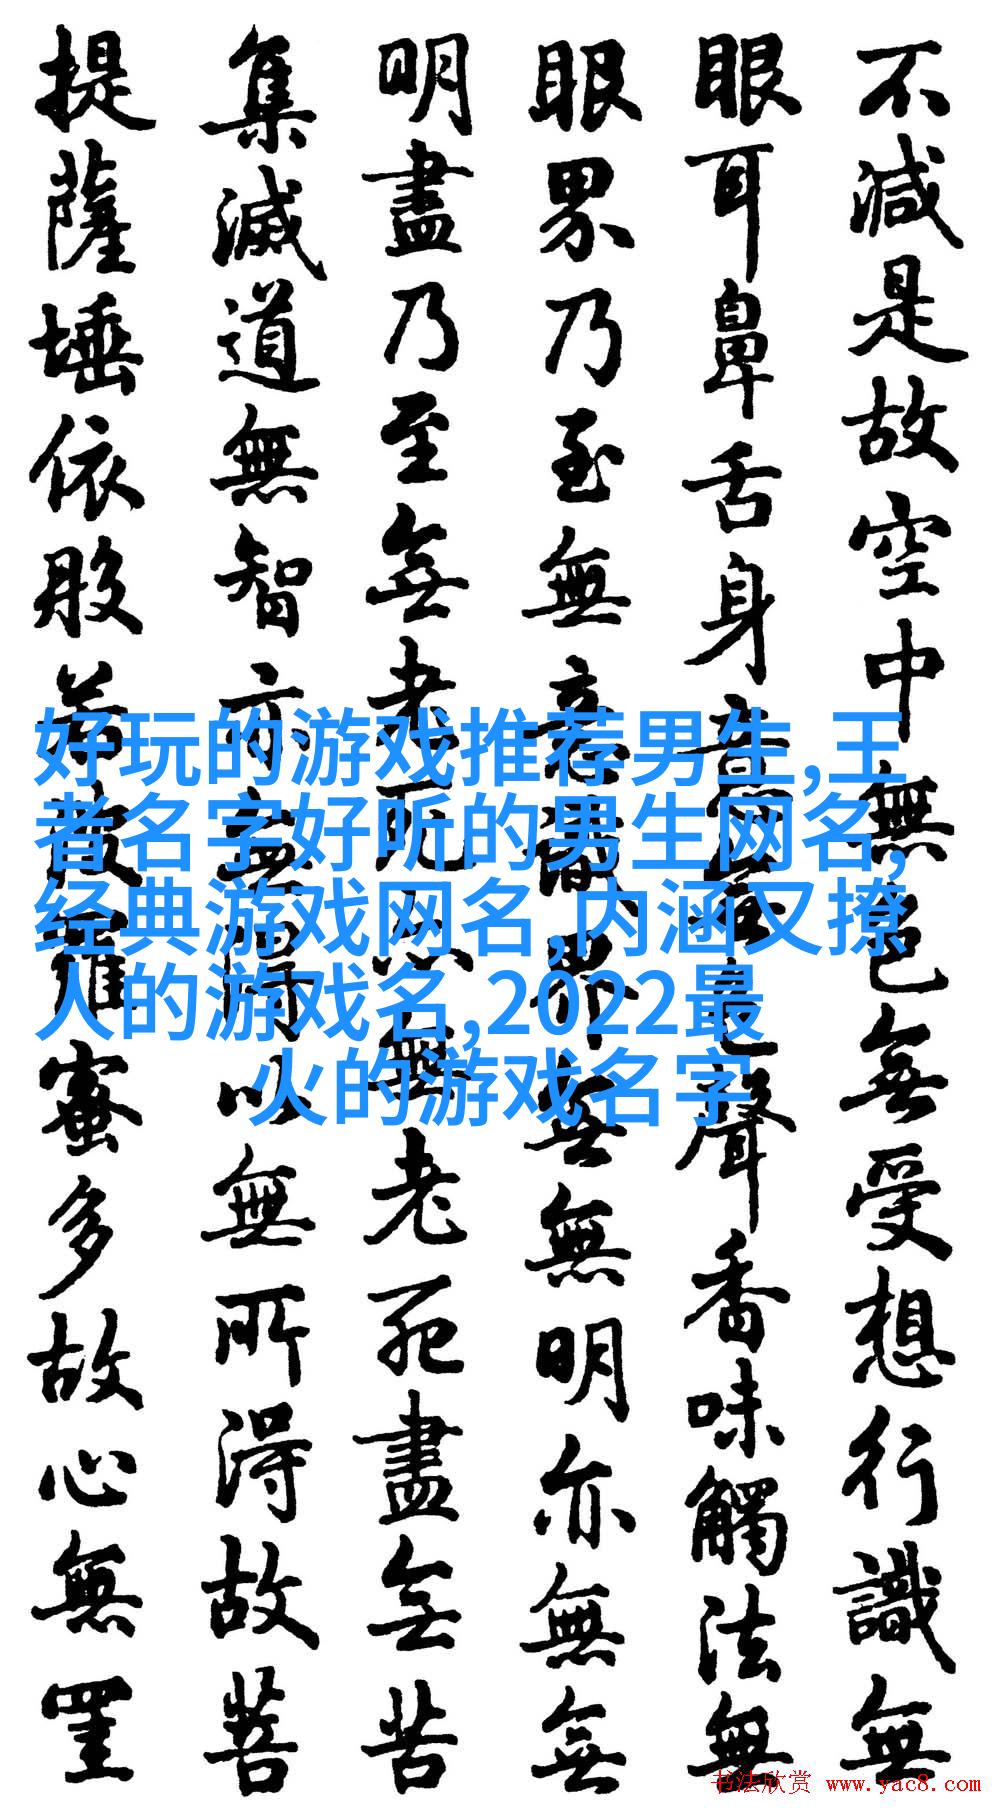 不減是故空中無色無受想行識無
眼耳鼻舌身意無色聲香味觸法無
眼界乃至無意識界無無明亦無無
明盡乃至無老死亦無老死盡無苦
集滅道無智亦無得以無所得故菩
提薩埵依般若波羅蜜多故心無罣
好玩的游戏推荐男生,王
者名字好听的男生网名,
经典游戏网名,内涵又撩
人的游戏名,2022最
火的游戏名字
书法欣赏 www.yac8.com